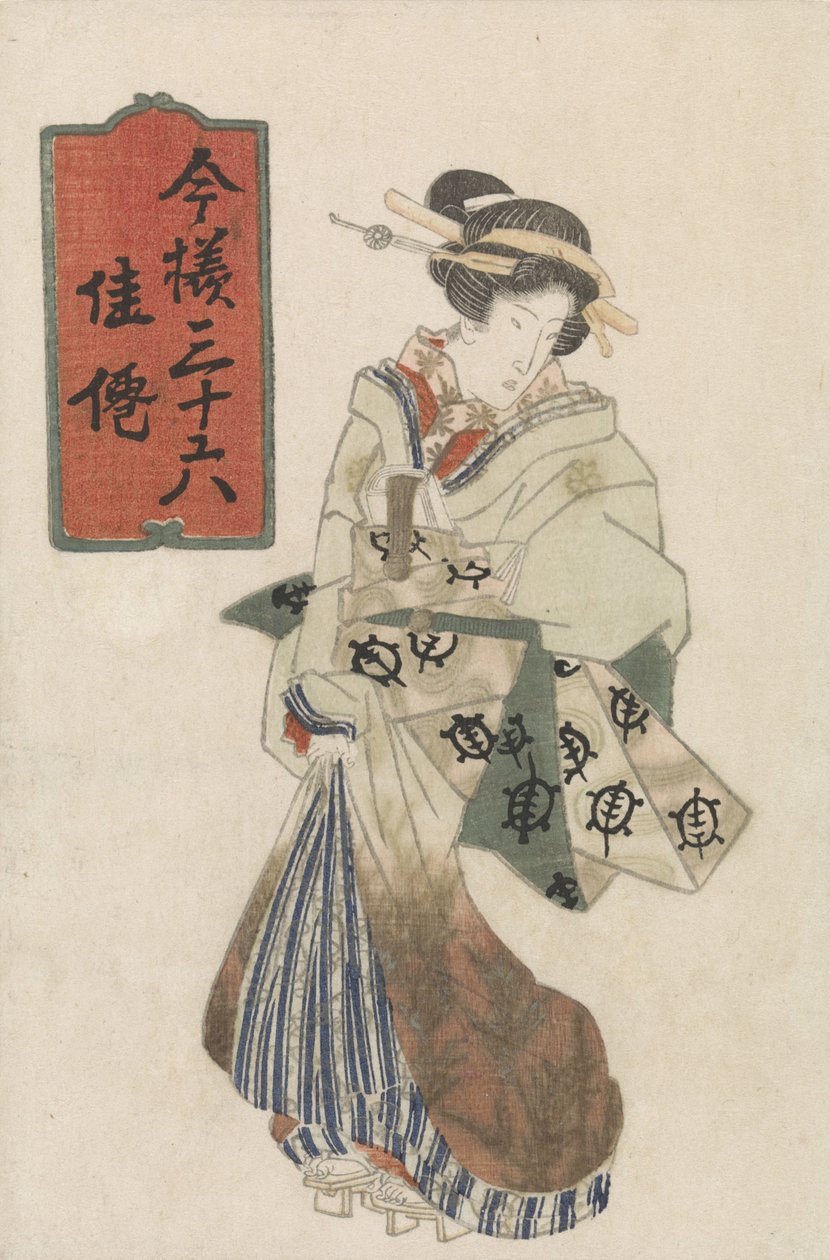 今様三十六
佳僊